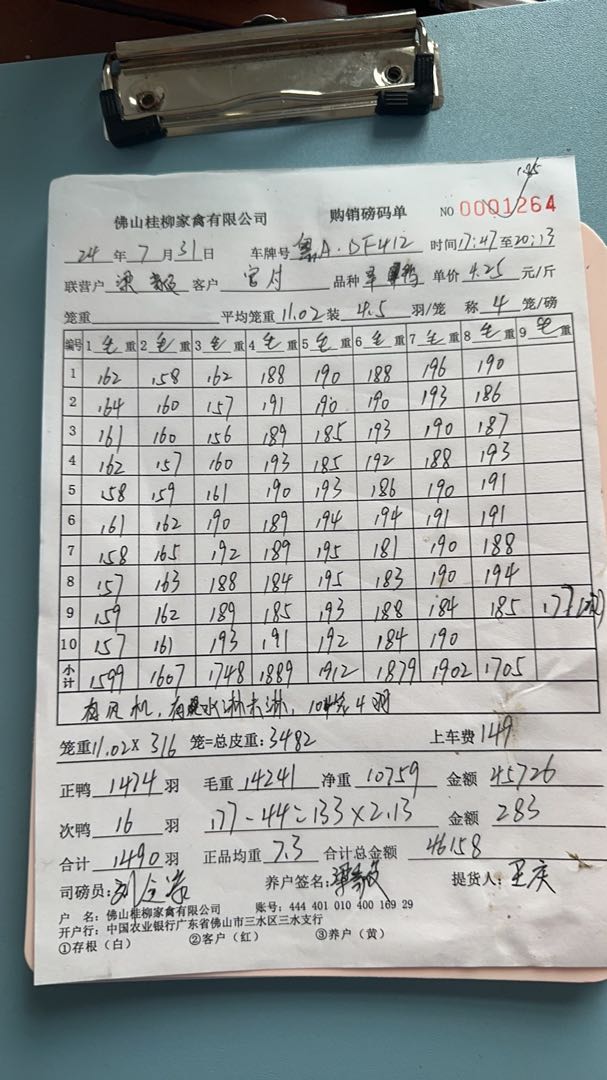 125
佛山桂柳家禽有限公司 购销磅码单 NO 0001264
24 年 7 月 31 日 车牌号 粤A·DF412 时间 17:47 至 20:13
联营户 梁 客户 品种 单价 4.25 元/斤
笼重 平均笼重 11.02 装 4.5 羽/笼 称 4 笼/磅
编号 1 毛 重 2 毛 重 3 毛 重 4 毛 重 5 毛 重 6 毛 重 7 毛 重 8 毛 重 9 毛 重
1 162 158 162 188 190 188 196 190
2 164 160 157 191 190 190 193 186
3 161 160 156 189 185 193 190 187
4 162 157 160 193 185 192 188 193
5 158 159 161 190 193 186 190 191
6 161 162 190 189 194 194 191 191
7 158 165 192 189 195 181 190 188
8 157 163 188 184 195 183 190 194
9 159 162 189 185 193 188 184 185 177
10 157 161 193 191 192 184 190
小计 1599 1607 1748 1889 1912 1879 1902 1705
有风机, 有水淋未淋, 4羽
笼重 11.02 × 316 笼=总皮重: 3482 上车费 149
正鸭 1474 羽 毛重 14241 净重 10759 金额 45726
次鸭 16 羽 177-44=133×2.13 金额 283
合计 1490 羽 正品均重 7.3 合计总金额 46158
司磅员: 刘 养户签名: 梁 提货人: 王庆
户 名: 佛山桂柳家禽有限公司 账号: 444 401 010 400 169 29
开户行: 中国农业银行广东省佛山市三水区三水支行
①存根（白） ②客户（红） ③养户（黄）